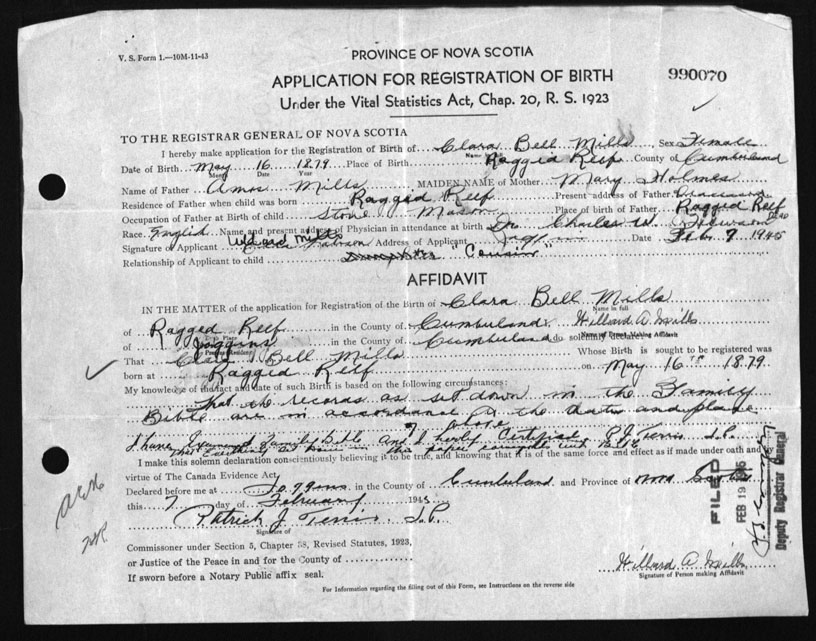 V. S. Form 1.—10M-11-43
PROVINCE OF NOVA SCOTIA
APPLICATION FOR REGISTRATION OF BIRTH
990070
Under the Vital Statistics Act, Chap. 20, R. S. 1923
TO THE REGISTRAR GENERAL OF NOVA SCOTIA
I hereby make application for the Registration of Birth of Clara Bell Mills, Sex Female
Date of Birth May 16 1879 Place of Birth Ragged Reef County of Cumberland
Month Date Year Name
Name of Father Amos Mills MAIDEN NAME of Mother Mary Holmes
Residence of Father when child was born Ragged Reef Present address of Father Deceased
Occupation of Father at Birth of child Stone Mason Place of birth of Father Ragged Reef
Race English Name and present address of Physician in attendance at birth Dr. Charles W. Hewson Dead
Signature of Applicant Willard Mills Address of Applicant Joggins Date Feb. 7 1945
Relationship of Applicant to child Daughter Cousin
AFFIDAVIT
IN THE MATTER of the application for Registration of the Birth of Clara Bell Mills
Name in full
of Ragged Reef in the County of Cumberland. Willard A. Mills
Birth Place Name of Person Making Affidavit
of Joggins in the County of Cumberland do solemnly declare:
Present Residence
That Clara Bell Mills Whose Birth is sought to be registered was
born at Ragged Reef on May 16" 1879
My knowledge of the fact and date of such Birth is based on the following circumstances:
That the records as set down in the Family
Bible are in accordance to the dates and place
above
I have Examined Family Bible and I hereby Certified P J Terris J.P.
this in this paper
I make this solemn declaration conscientiously believing it to be true, and knowing that it is of the same force and effect as if made under oath and by
virtue of The Canada Evidence Act.
Declared before me at Joggins in the County of Cumberland and Province of Nova Scotia
this 7 day of February 1945
Patrick J Terris J.P.
Signature of
Commissioner under Section 5, Chapter 38, Revised Statutes, 1923,
or Justice of the Peace in and for the County of
If sworn before a Notary Public affix seal.
Willard A Mills
Signature of Person making Affidavit
For Information regarding the filling out of this Form, see Instructions on the reverse side
FILED
FEB 19 1945
Deputy Registrar General